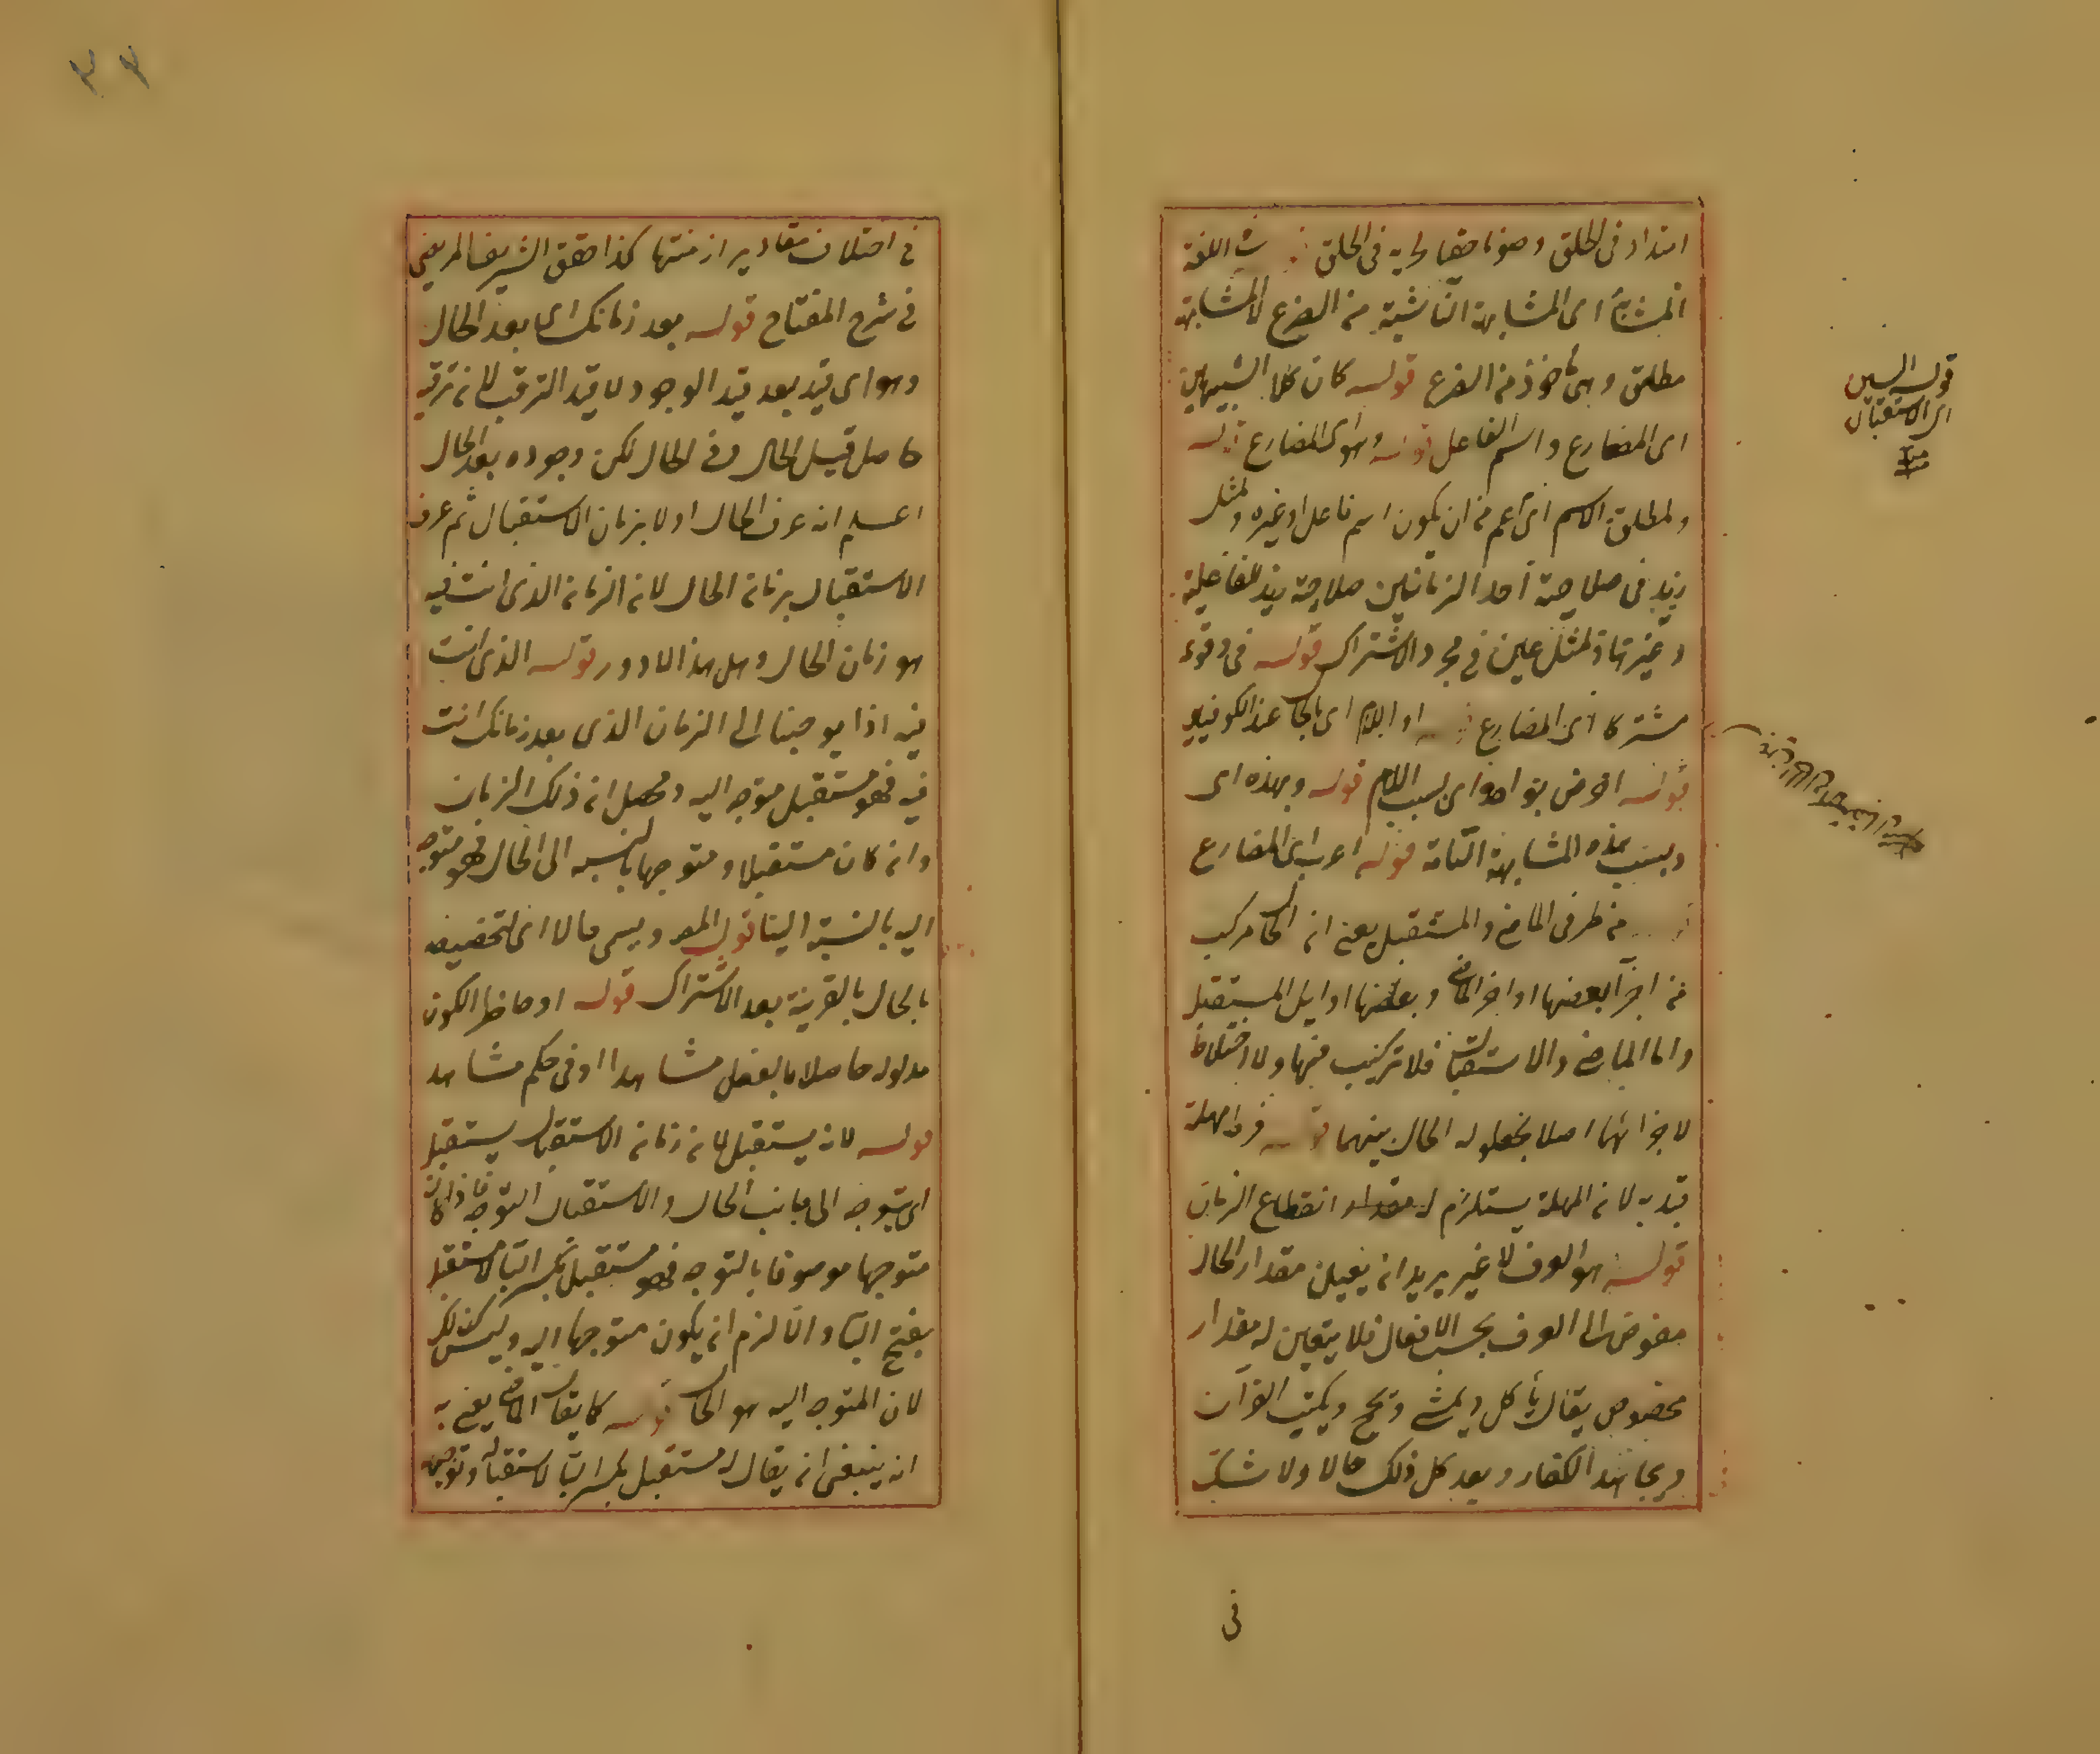 امتداد فى الحلق وصوتا خفيا لجريه فى الحلق فى اللغة
المشابهة اى المشابهة الناشية من الضرع لا المشابهة
مطلق وهى مأخوذ من الضرع قوله كان كلا الشبيهين
اى المضارع واسم الفاعل قوله وهو اى المضارع قوله
ولمطلق الاسم اى اعم من ان يكون اسم فاعل او غيره ولمثل
زيد فى صلاحية احد الزمانين صلاحية زيد للفاعلية
وغيرها ولمثل عين فى مجرد الاشتراك قوله فى وقوعه
مشتركا اى المضارع او اللام اى بالحال عند الكوفيين
قوله اخص بواحد اى بسبب اللام قوله وبهذه اى
وبسبب بهذه المشابهة التامة قوله اعرب اى المضارع
من طرفى الماضى والمستقبل يعنى ان الحال مركب
من اجزاء بعضها اواخر الماضى وبعضها اوايل المستقبل
واما الماضى والاستقبال فلا تركيب فيها ولا اختلاط
لاجزائهما اصلا بحلول الحال بينهما قوله من مهلة
قيد به لان المهلة يستلزم له مقدار انقطاع الزمان
قوله هو العرف لا غير يريد ان يعين مقدار الحال
مفوض الى العرف بحسب الافعال فلا يتعين له مقدار
مخصوص يقال يأكل ويمشى ويحج ويكتب القرآن
ويجاهد الكفار ويعد كل ذلك حالا ولا شك
فى
قوله السين
اى الاستقبال
منه
٣٣
فى اختلاف مقادير ازمنتها كذا حقق الشريف المرتضى
فى شرح المفتاح قوله بعد زمانك اى بعد الحال
وهو اى قيد بعد قيد الوجود لا قيد الترقب لان ترقبه
حاصل قبيل الحال وفى الحال لكن وجوده بعد الحال
اعلم ان عرف الحال اولا بزمان الاستقبال ثم عرف
الاستقبال بزمان الحال لان الزمان الذى انت فيه
هو زمان الحال وهل هذا الا دور قوله الذى انت
فيه اذا يوجهنا الى الزمان الذى بعد زمانك انت
فيه فهو مستقبل متوجه اليه ومحصل ان ذلك الزمان
وان كان مستقبلا ومتوجها بالنسبة الى الحال فهو متوجه
اليه بالنسبة الينا قول المص ويسمى حالا اى لتخصيصه
بالحال بالقرينة بعد الاشتراك قوله او حاضرا لكون
مدلوله حاصلا بالفعل مشاهدا او فى حكم مشاهد
قوله لانه يستقبل لان زمان الاستقبال يستقبل
اى يتوجه الى جانب الحال والاستقبال التوجه فاذا كان
متوجها موصوفا بالتوجه فهو مستقبل بكسر الباء لا مستقبل
بفتح الباء والا لزم ان يكون متوجها اليه وليس كذلك
لان المتوجه اليه هو الحال قوله كما يقال الماضى يعنى به
انه ينبغى ان يقال له مستقبل بكسر الباء لاستقباله وتوجهه